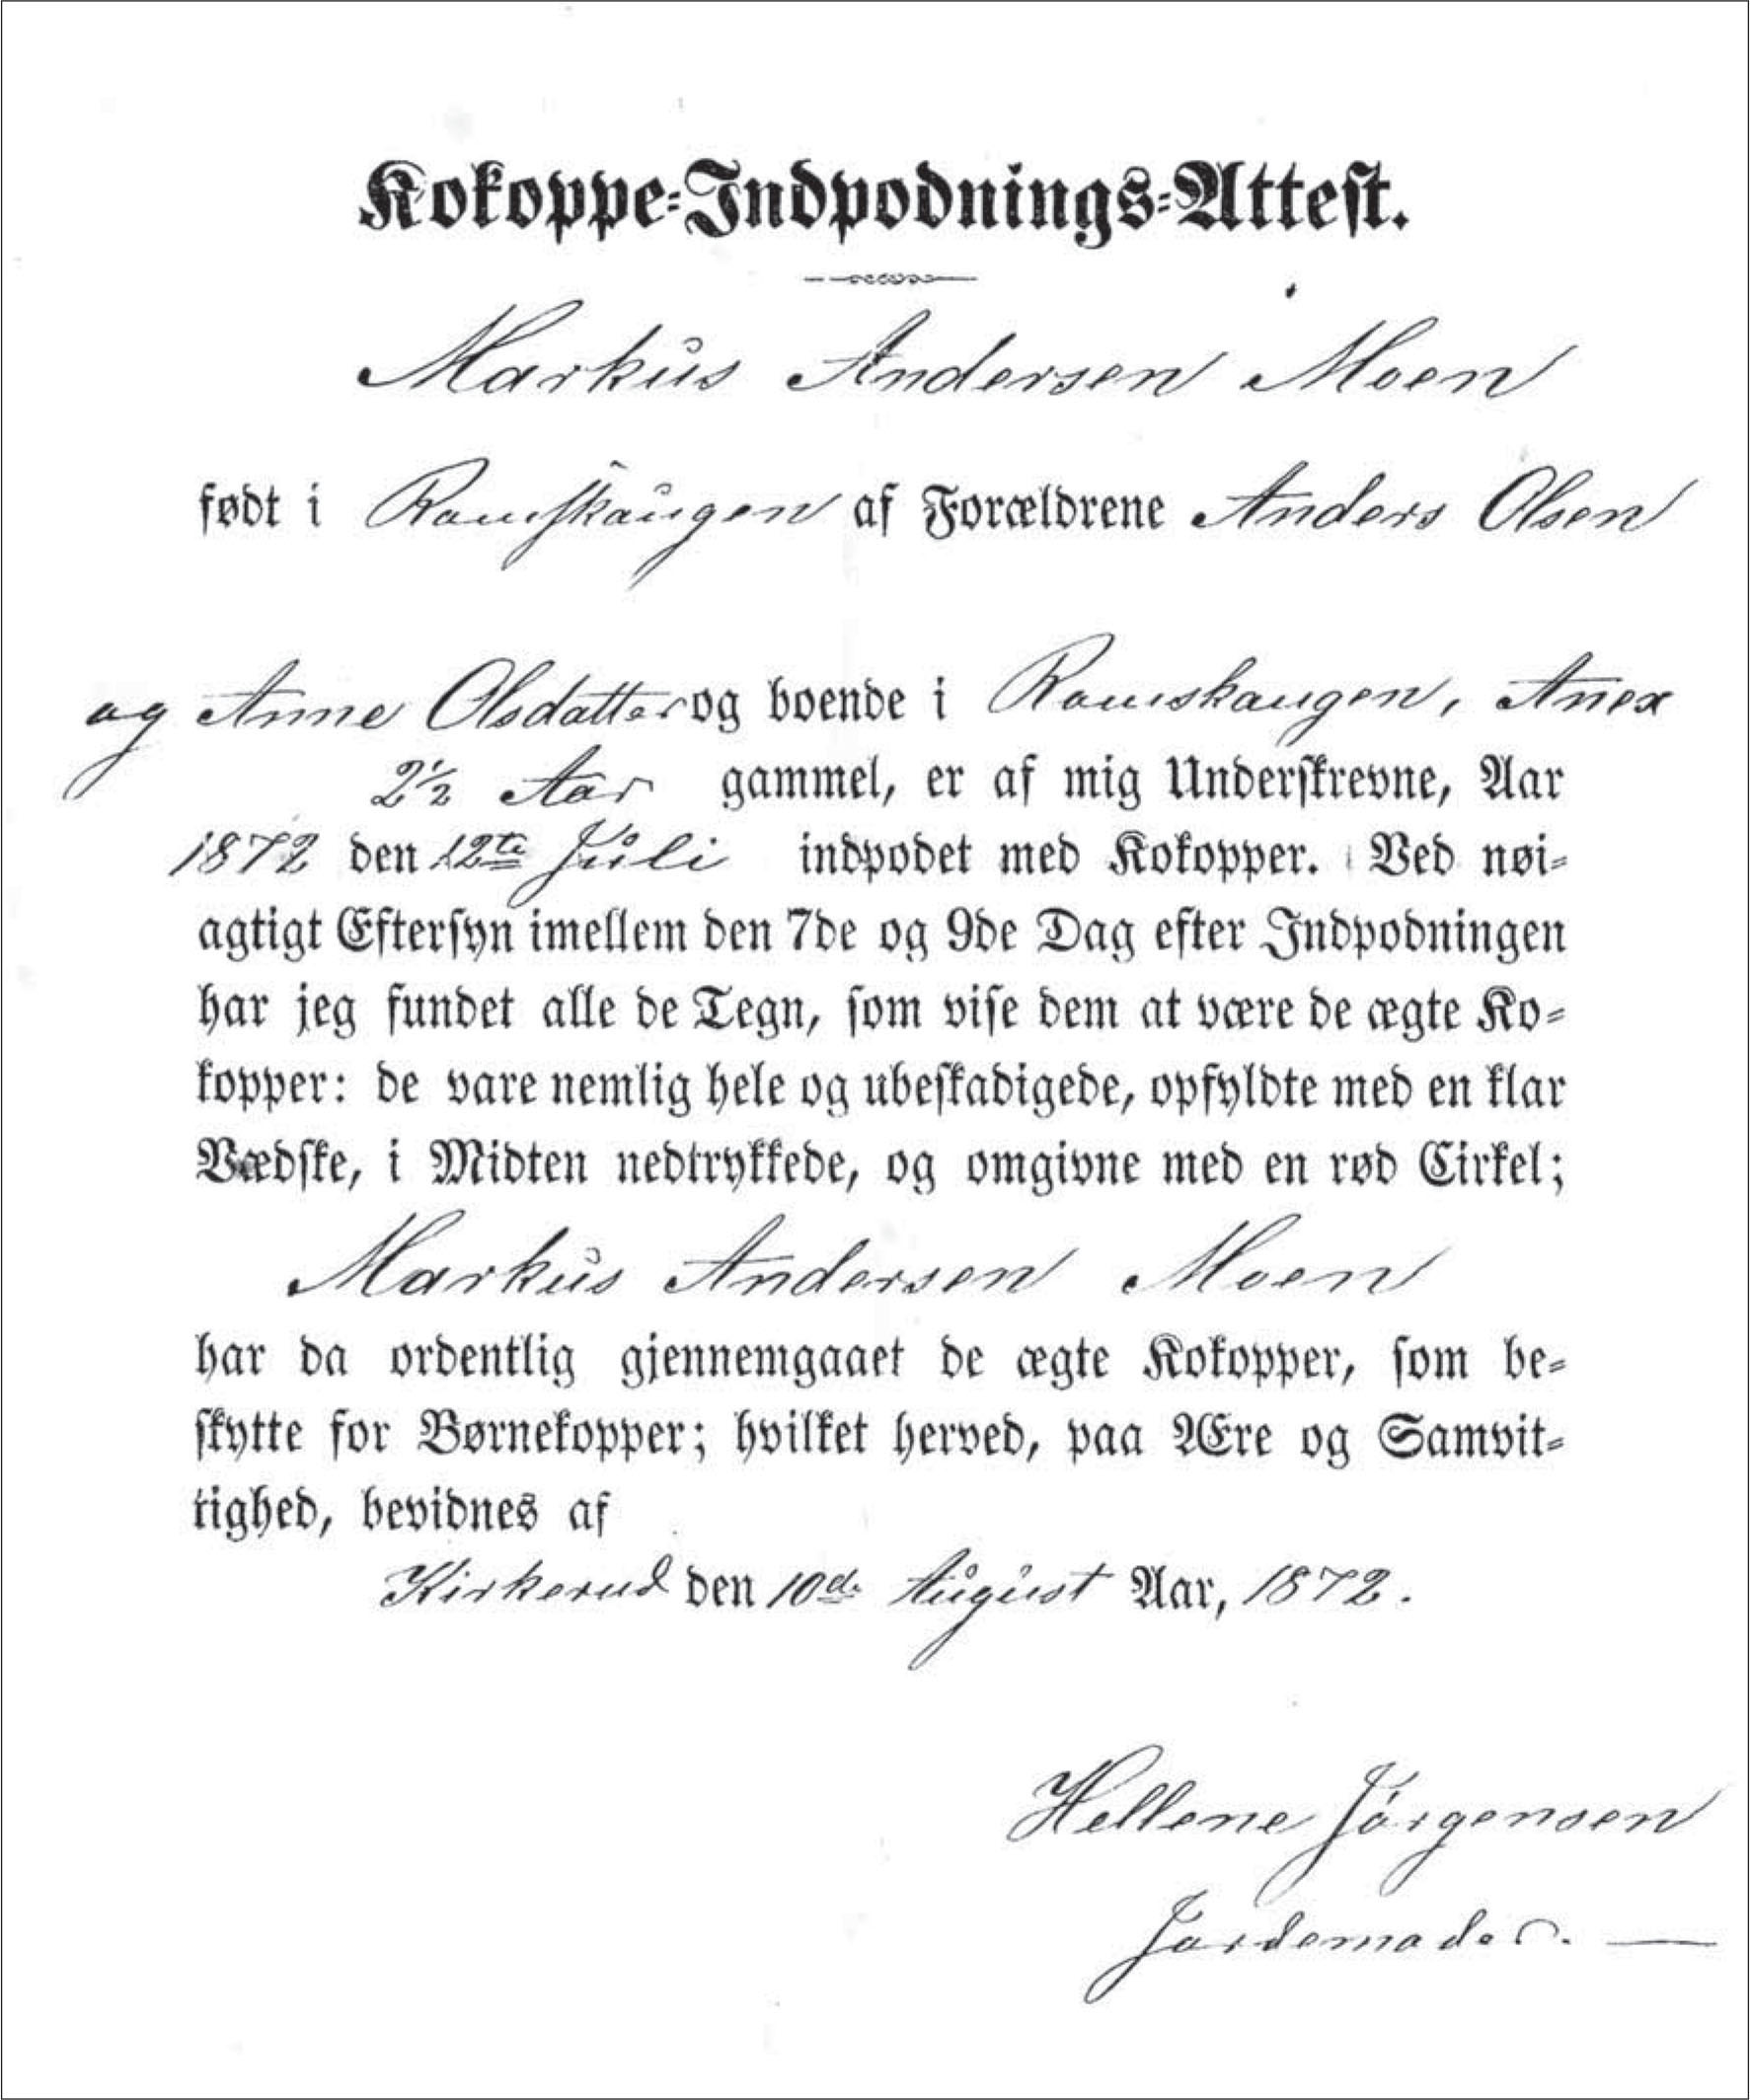 Kokoppe-Indpodnings-Attest.
Markus Andersen Moen
født i Romskaugen af Forældrene Anders Olsen
og Anne Olsdatter og boende i Romskaugen, Anex
2½ Aar gammel, er af mig Underskrevne, Aar
1872 den 12te Juli indpodet med Kokopper. Ved nøi-
agtigt Eftersyn imellem den 7de og 9de Dag efter Indpodningen
har jeg fundet alle de Tegn, som vise dem at være de ægte Ko-
kopper: de vare nemlig hele og ubeskadigede, opfyldte med en klar
Vædske, i Midten nedtrykkede, og omgivne med en rød Cirkel;
Markus Andersen Moen
har da ordentlig gjennemgaaet de ægte Kokopper, som be-
skytte for Børnekopper; hvilket herved, paa Ære og Samvit-
tighed, bevidnes af
Kirkerud den 10de August Aar, 1872.
Hellene Jörgensen
Jordemoder. —